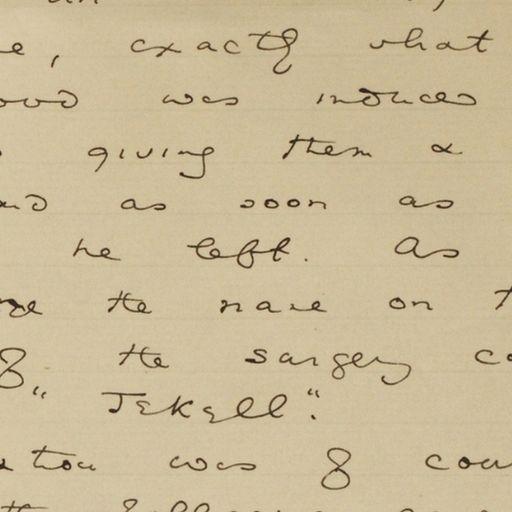 exactly what
was induced
giving them a
as soon as
he left. As
the name on
of the surgery
"JEKELL".
was of